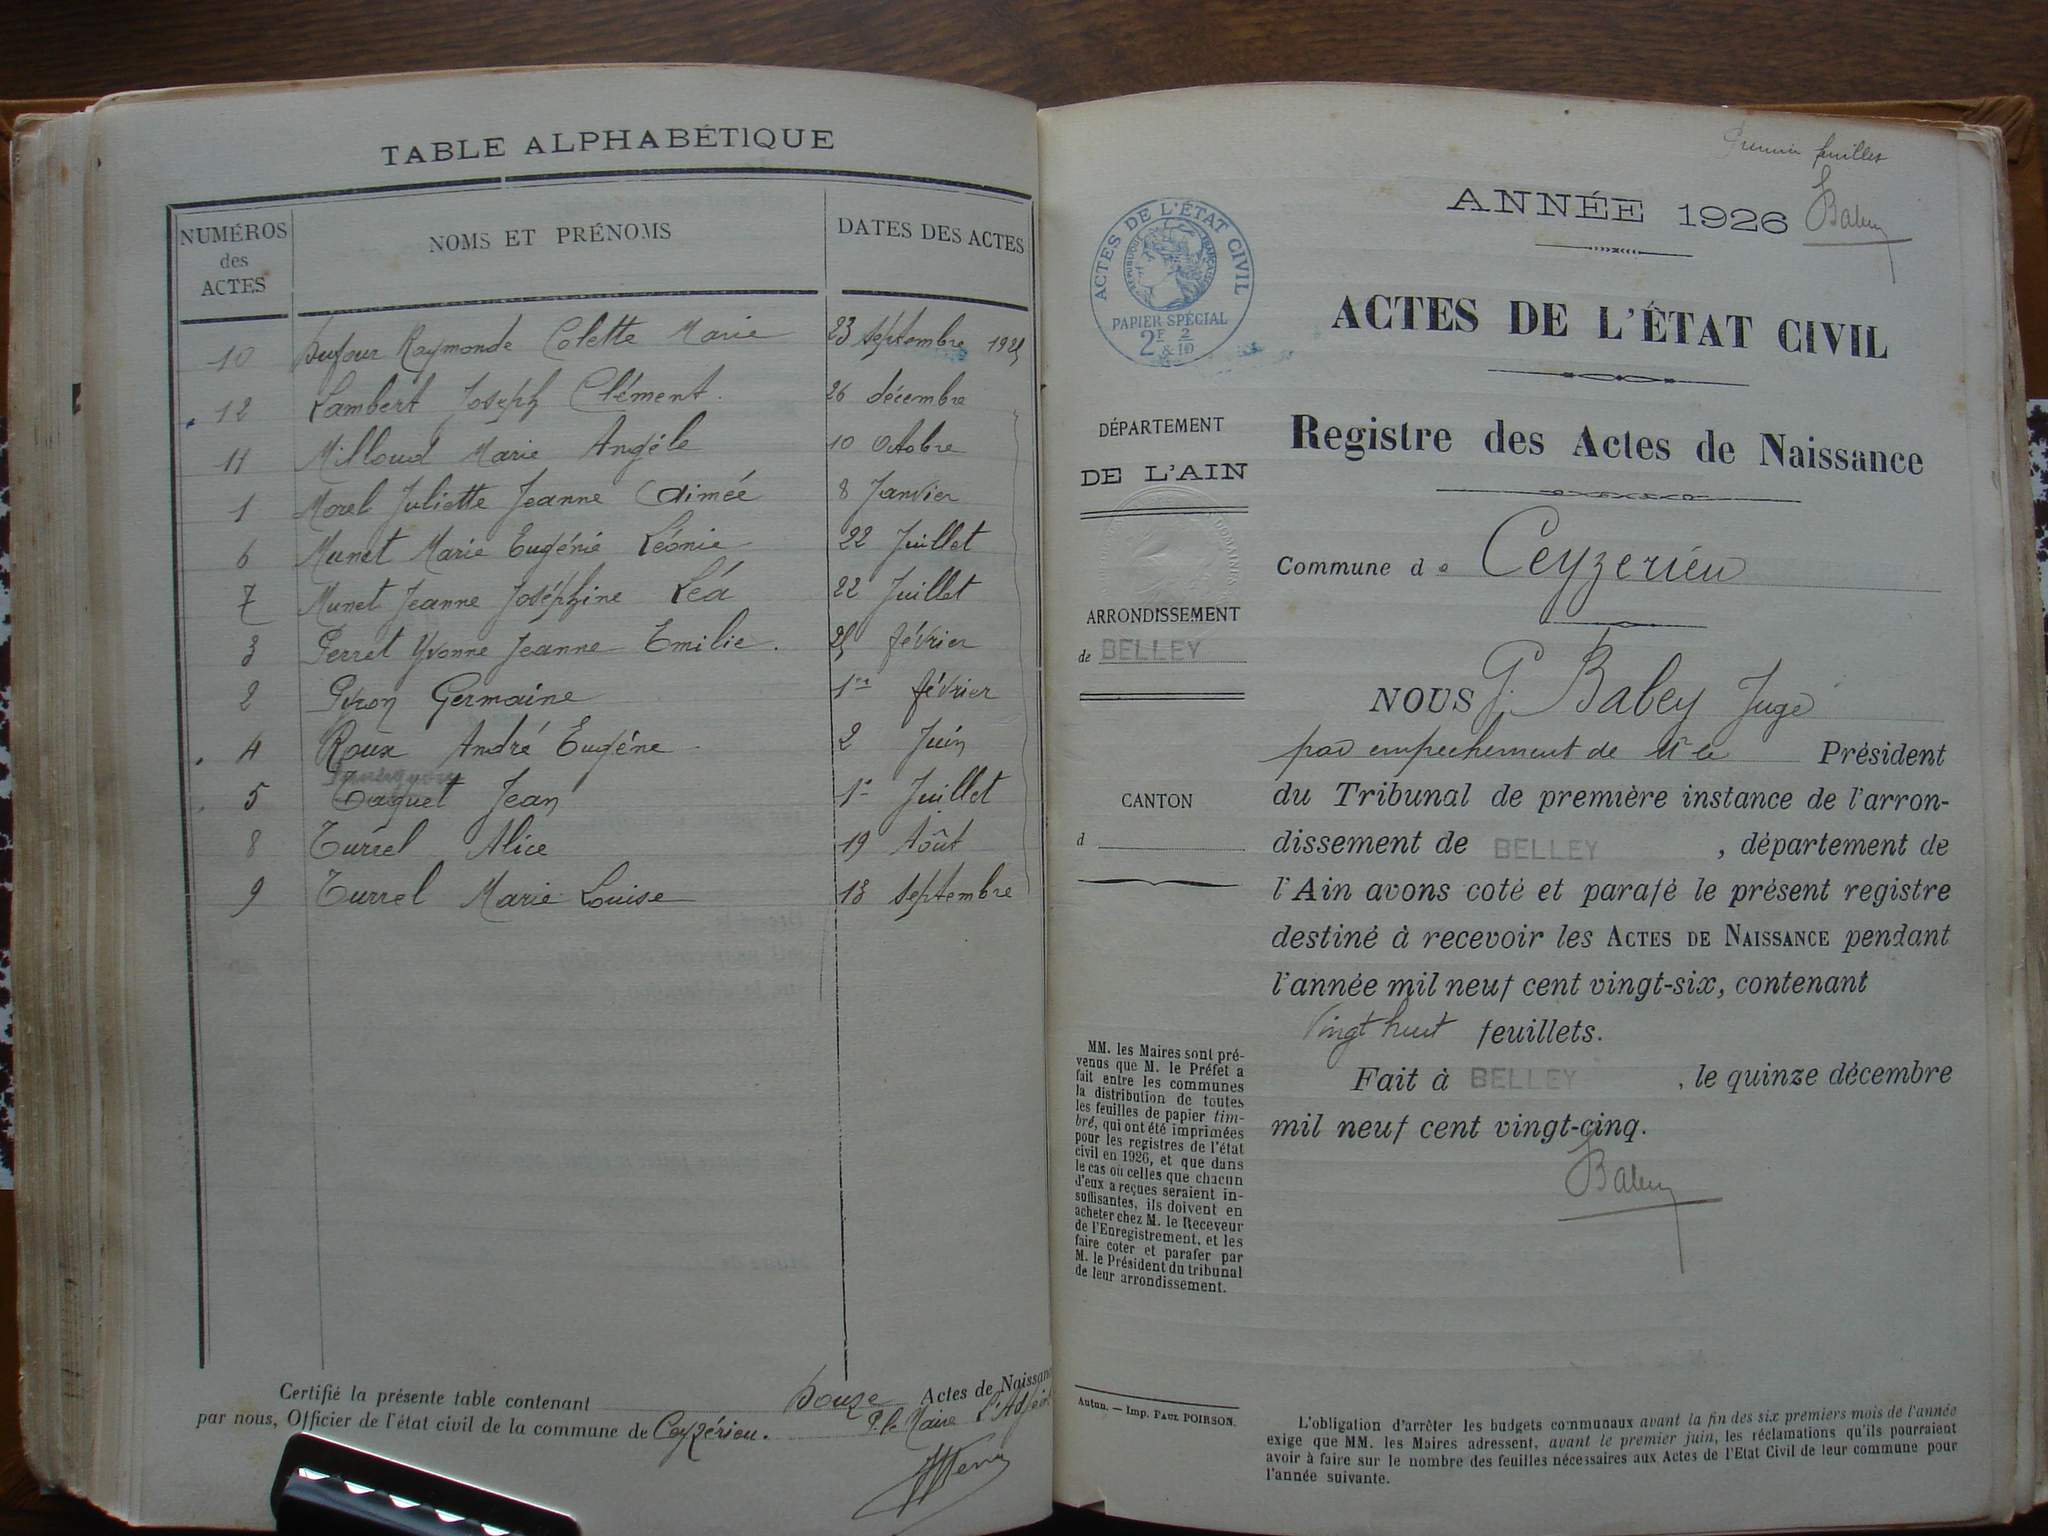 TABLE ALPHABÉTIQUE
NUMÉROS des ACTES NOMS ET PRÉNOMS DATES DES ACTES
10 Dufour Raymonde Colette Marie 23 septembre 1925
12 Lambert Joseph Clément. 26 décembre
11 Milloud Marie Angéle 10 Octobre
1 Morel Juliette Jeanne Aimée 8 Janvier
6 Munet Marie Eugénie Léonie 22 Juillet
7 Munet Jeanne Joséphine Léa 22 Juillet
3 Perret Yvonne Jeanne Emilie. 25 février
2 Piron Germaine 1er février
4 Roux André Eugéne 2 Juin
5 Taquet Jean 1er Juillet
8 Turrel Alice 19 Août
9 Turrel Marie Louise 13 septembre
Certifié la présente table contenant Douze Actes de Naissanc
par nous, Officier de l'état civil de la commune de Ceyzérieu. P. le Maire L'Adjoint
Premier feuillet
ANNÉE 1926 Babey
ACTES DE L'ÉTAT CIVIL
RÉPUBLIQUE FRANÇAISE
PAPIER SPÉCIAL
2F & 2/10
ACTES DE L'ÉTAT CIVIL
Registre des Actes de Naissance
DÉPARTEMENT
DE L'AIN
DOMAINES
ARRONDISSEMENT
de BELLEY
CANTON
d
Commune de Ceyzerieu
NOUS G. Babey Juge
par empechement de Mr le Président
du Tribunal de première instance de l'arron-
dissement de BELLEY, département de
l'Ain avons coté et parafé le présent registre
destiné à recevoir les ACTES DE NAISSANCE pendant
l'année mil neuf cent vingt-six, contenant
Vingt huit feuillets.
Fait à BELLEY, le quinze décembre
mil neuf cent vingt-cinq.
Babey
MM. les Maires sont pré-
venus que M. le Préfet a
fait entre les communes
la distribution de toutes
les feuilles de papier tim-
bré, qui ont été imprimées
pour les registres de l'état
civil en 1926, et que dans
le cas où celles que chacun
d'eux a reçues seraient in-
suffisantes, ils doivent en
acheter chez M. le Receveur
de l'Enregistrement, et les
faire coter et parafer par
M. le Président du tribunal
de leur arrondissement.
Autun. — Imp. PAUL POIRSON.
L'obligation d'arrêter les budgets communaux avant la fin des six premiers mois de l'année
exige que MM. les Maires adressent, avant le premier juin, les réclamations qu'ils pourraient
avoir à faire sur le nombre des feuilles nécessaires aux Actes de l'Etat Civil de leur commune pour
l'année suivante.